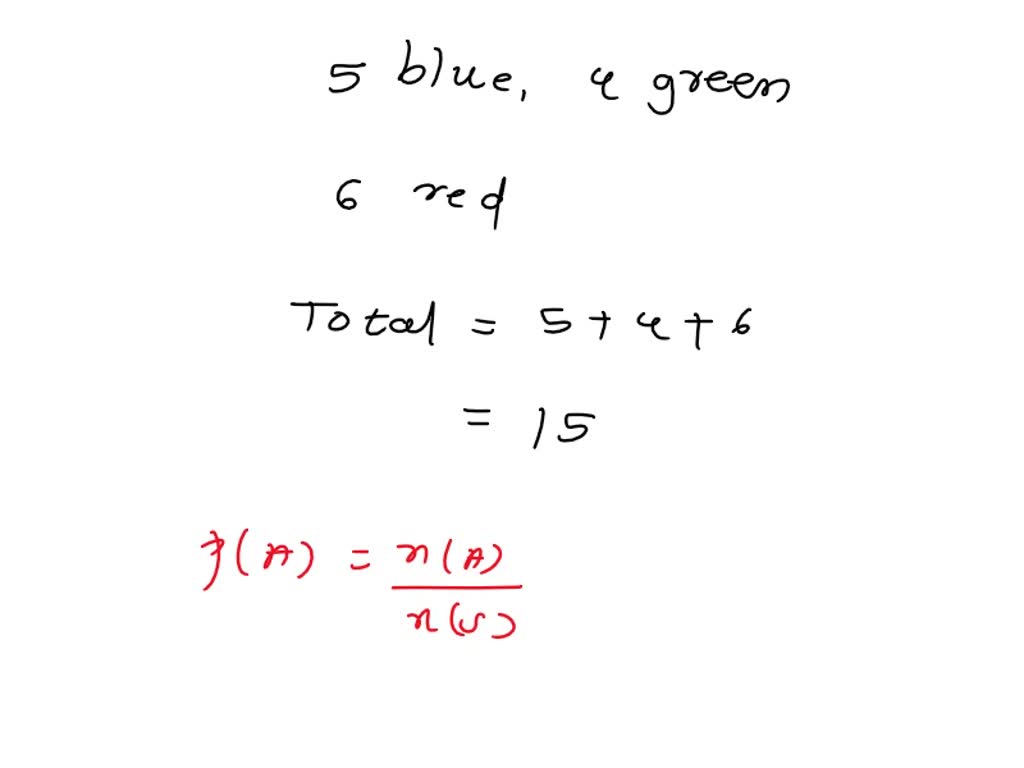 5 blue, 4 green
6 red
Total = 5 + 4 + 6
= 15
P(A) = n(A)
n(S)